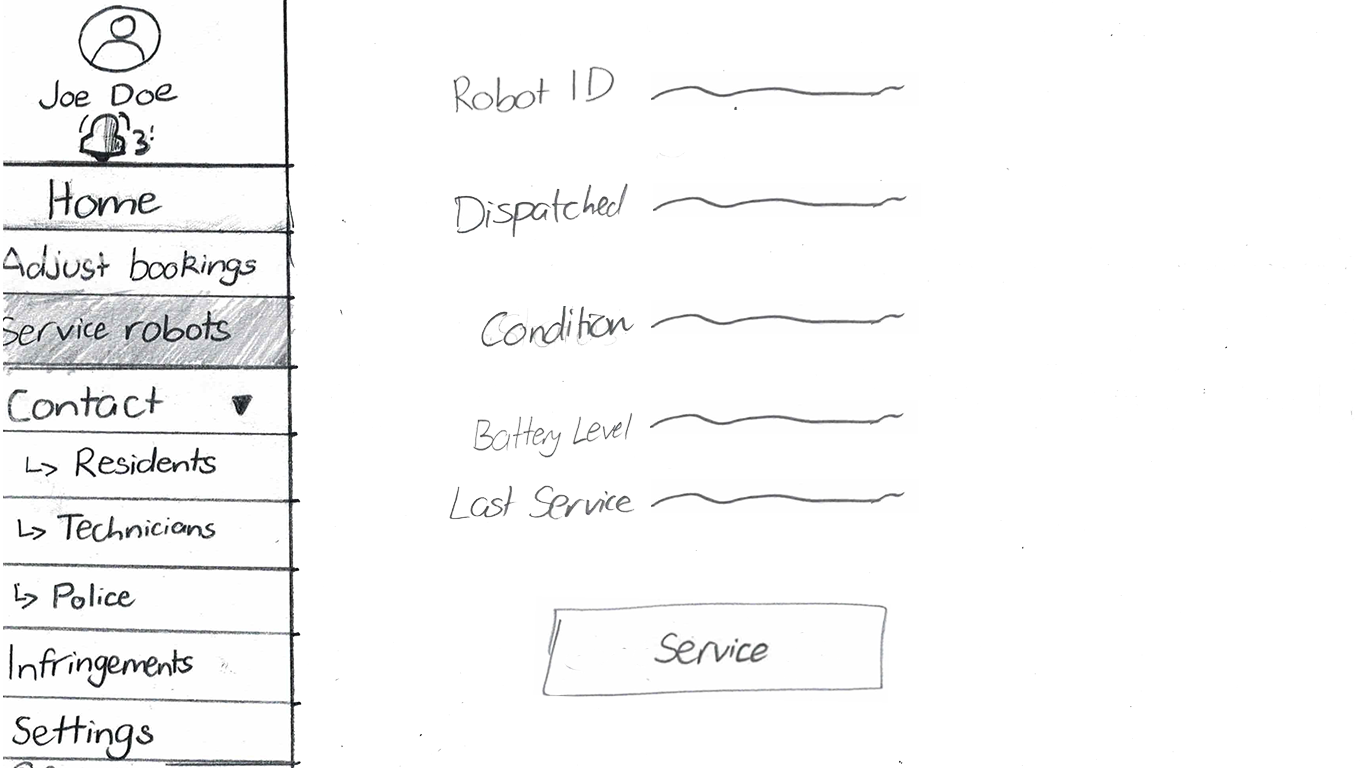 Joe Doe
3
Home
Adjust bookings
Service robots
Contact
Residents
Technicians
Police
Infringements
Settings
Robot ID
Dispatched
Condition
Battery Level
Last Service
Service